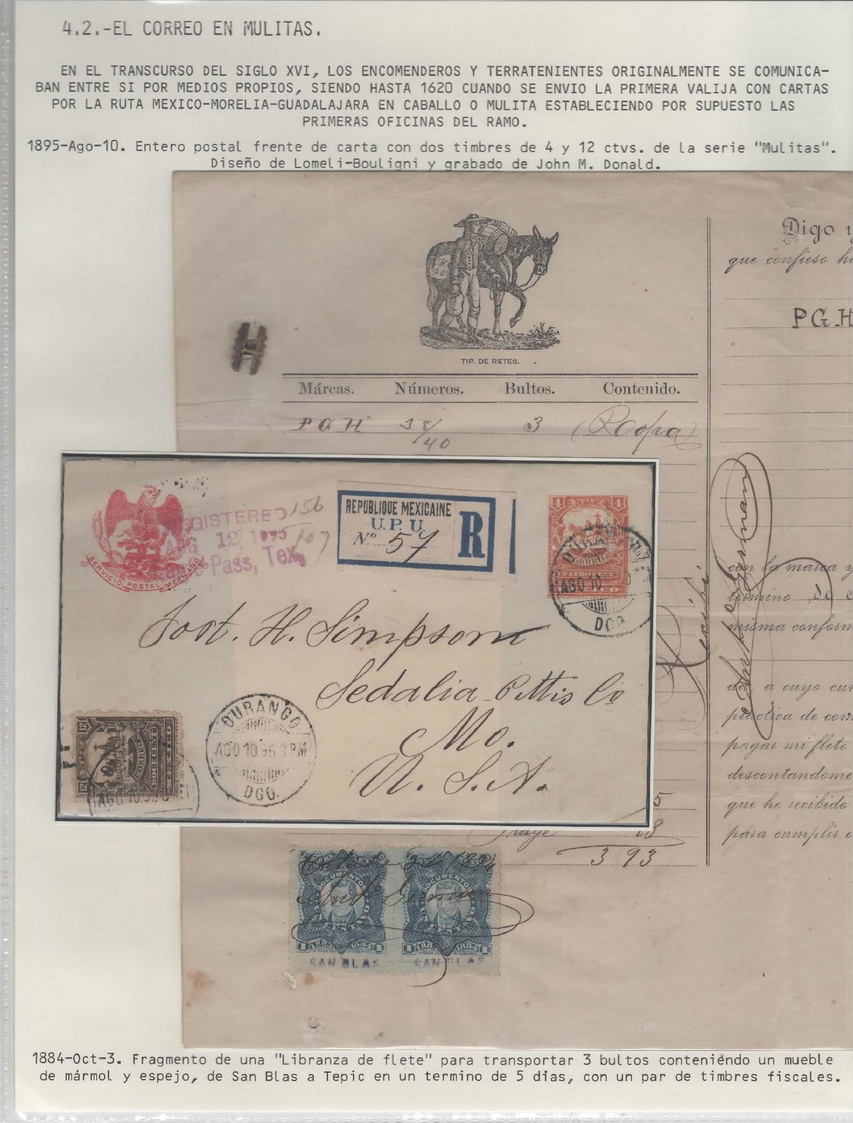 4.2.-EL CORREO EN MULITAS.
EN EL TRANSCURSO DEL SIGLO XVI, LOS ENCOMENDEROS Y TERRATENIENTES ORIGINALMENTE SE COMUNICA-
BAN ENTRE SI POR MEDIOS PROPIOS, SIENDO HASTA 1620 CUANDO SE ENVIO LA PRIMERA VALIJA CON CARTAS
POR LA RUTA MEXICO-MORELIA-GUADALAJARA EN CABALLO O MULITA ESTABLECIENDO POR SUPUESTO LAS
PRIMERAS OFICINAS DEL RAMO.
1895-Ago-10. Entero postal frente de carta con dos timbres de 4 y 12 ctvs. de la serie "Mulitas".
Diseño de Lomeli-Bouligni y grabado de John M. Donald.
Digo y
que confieso h
PGH
TIP. DE RETES.
Márcas. Números. Bultos. Contenido.
PGH 38/40 3 (Ropa)
SERVICIO POSTAL MEXICANO
GISTERED
12 1895
Pass, Tex.
156
107
REPUBLIQUE MEXICAINE
U.P.U.
No. 57
R
4 4
DURANGO
AGO 10
DGO.
Jost. H. Simpson
Sedalia Pettis Co
Mo.
U. S. A.
12 12
AGO 10
DURANGO
AGO 10.95 3 PM
DGO.
Recibí
con la marca y
término de
misma conform
da, a cuyo cum
práctica de com
pagar mi flete
descontandome
que he recibido
para cumplir
5
18
3 93
DOCUMENTOS
1 1
SAN BLAS SAN BLAS
1884-Oct-3. Fragmento de una "Libranza de flete" para transportar 3 bultos conteniéndo un mueble
de mármol y espejo, de San Blas a Tepic en un termino de 5 dias, con un par de timbres fiscales.